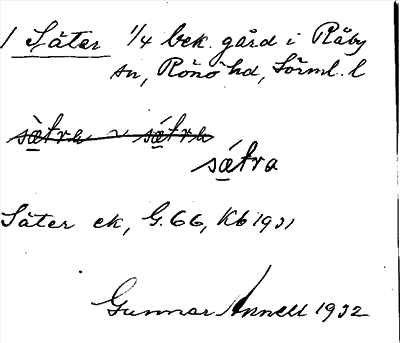 1 Säter 1/4 bek. gård i Råby
sn, Rönö hd, Sörml. l
sätra ~ sátra
sátra
Säter ek, G. 66, Kb 1931
Gunnar Annell 1932